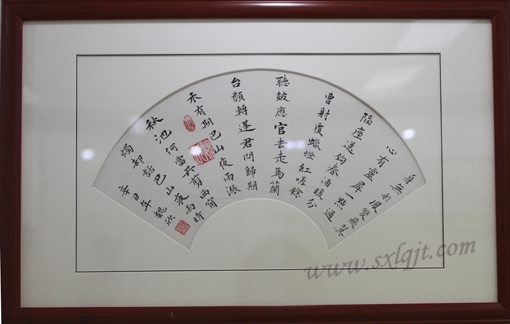 身無彩鳳雙飛翼
心有靈犀一點通
隔座送鉤春酒暖分
曹射覆蠟燈紅嗟餘
聽鼓應官去走馬蘭
台類轉蓬君問歸期
未有期巴山夜雨漲
秋池何當共剪西窗
燭却話巴山夜雨時
辛丑年
www.sxlqjt.com